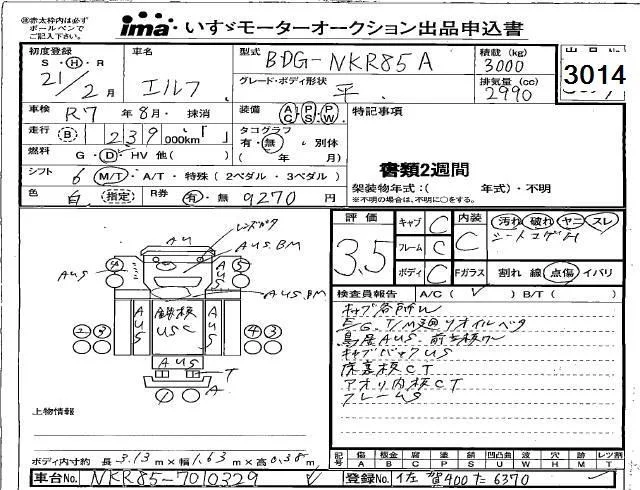 ㊟赤太枠内は必ず
ボールペンで
ご記入下さい。
ima いすゞモーターオークション出品申込書
初度登録
S・H・R
21/2月
車名
エルフ
型式
BDG-NKR85A
積載 (kg)
3000
3014
グレード・ボディ形状
平
排気量 (cc)
2990
車検
R7年8月・抹消
装備
AC PS PW
特記事項
走行 B 239 000km
タコグラフ
有・無 別体
( 年 月)
燃料
G・D・HV 他( )
書類2週間
シフト
6 M/T・A/T・特殊 (2ペダル・3ペダル)
架装物年式:( 年式)・不明
※不明の場合は、不明に○をする。
色
白 指定
R券
有・無 9270円
評価
3.5
キャブ C
フレーム C
ボディ C
内装 C
汚れ 破れ ヤニ スレ
シートコゲ
Fガラス 割れ 線 点傷 イバリ
検査員報告 A/C ( ✓ ) B/T ( )
AU
AUS.BM
④
⑤
AUS
A
AUS.BM
AUS
鉄板
USC
AUS
②
④③
AUS
T
①
A
キャブ各所W
E/G. T/M
鳥居AUS.
キャブバックUS
床裏板CT
アオリ内板CT
フレームS
上物情報
ボディ内寸約 長 3.13 m×幅 1.63 m×高 0.38 m
記号 傷 板金 腐 塗 錆 凹 凸 曲 波 穴 板目 レツ割
A B C P S U W H M T
車台No. NKR85-7010329
登録No. 佐賀400た6370